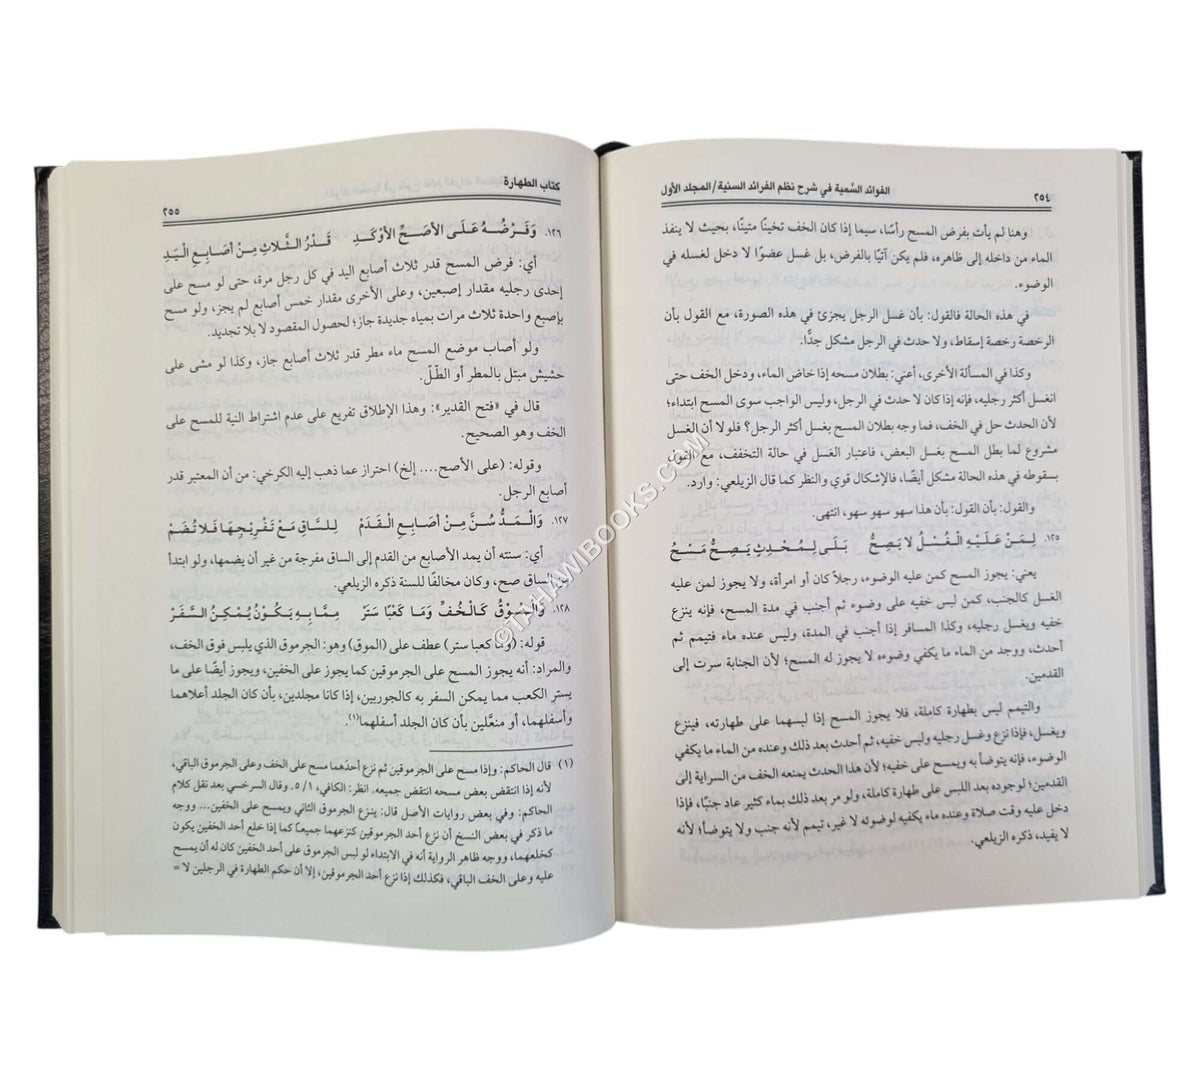 الفوائد السَّمية في شرح نظم الفرائد السنية/ المجلد الأول
٢٥٤
وهنا لم يأت بفرض المسح رأسًا، سيما إذا كان الخف ثخينًا متينًا، بحيث لا ينفذ
الماء من داخله إلى ظاهره، فلم يكن آتيًا بالفرض، بل غسل عضوًا لا دخل لغسله في
الوضوء.
في هذه الحالة فالقول: بأن غسل الرجل يجزئ في هذه الصورة، مع القول بأن
الرخصة رخصة إسقاط، ولا حدث في الرجل مشكل جدًّا.
وكذا في المسألة الأخرى، أعني: بطلان مسحه إذا خاض الماء، ودخل الخف حتى
انغسل أكثر رجليه، فإنه إذا كان لا حدث في الرجل، وليس الواجب سوى المسح ابتداء؛
لأن الحدث حل في الخف، فما وجه بطلان المسح بغسل أكثر الرجل؟ فلولا أن الغسل
مشروع لما بطل المسح بغسل البعض، فاعتبار الغسل في حالة التخفف، مع القول
بسقوطه في هذه الحالة مشكل أيضًا، فالإشكال قوي والنظر كما قال الزيلعي: وارد.
والقول: بأن القول: بأن هذا سهو سهو سهو، انتهى.
١٢٥. لِمَنْ عَلَيْهِ الْغُسْلُ لَا يَصِحُّ بَلَى لِمُحْدِثٍ يَصِحُّ مَسْحُ
يعني: يجوز المسح كمن عليه الوضوء، رجلاً كان أو امرأة، ولا يجوز لمن عليه
الغسل كالجنب، كمن لبس خفيه على وضوء ثم أجنب في مدة المسح، فإنه ينزع
خفيه ويغسل رجليه، وكذا المسافر إذا أجنب في المدة، وليس عنده ماء فتيمم ثم
أحدث، ووجد من الماء ما يكفي وضوءه لا يجوز له المسح؛ لأن الجنابة سرت إلى
القدمين.
والتيمم ليس بطهارة كاملة، فلا يجوز المسح إذا لبسهما على طهارته، فينزع
ويغسل، فإذا نزع وغسل رجليه ولبس خفيه، ثم أحدث بعد ذلك وعنده من الماء ما يكفي
الوضوء، فإنه يتوضأ به ويمسح على خفيه؛ لأن هذا الحدث يمنعه الخف من السراية إلى
القدمين؛ لوجوده بعد اللبس على طهارة كاملة، ولو مر بعد ذلك بماء كثير عاد جنبًا، فإذا
دخل عليه وقت صلاة وعنده ماء يكفيه لوضوئه لا غير، تيمم لأنه جنب ولا يتوضأ؛ لأنه
لا يفيد، ذكره الزيلعي.
كتاب الطهارة
٢٥٥
١٢٦. وَفَرْضُهُ عَلَى الأَصَحِّ الأَوْكَدِ قَدْرُ الثَّلَاثِ مِنْ أَصَابِعِ الْيَدِ
أي: فرض المسح قدر ثلاث أصابع اليد في كل رجل مرة، حتى لو مسح على
إحدى رجليه مقدار إصبعين، وعلى الأخرى مقدار خمس أصابع لم يجز، ولو مسح
بإصبع واحدة ثلاث مرات بمياه جديدة جاز؛ لحصول المقصود لا بلا تجديد.
ولو أصاب موضع المسح ماء مطر قدر ثلاث أصابع جاز، وكذا لو مشى على
حشيش مبتل بالمطر أو الطّلّ.
قال في «فتح القدير»: وهذا الإطلاق تفريع على عدم اشتراط النية للمسح على
الخف وهو الصحيح.
وقوله: (على الأصح.... إلخ) احتراز عما ذهب إليه الكرخي: من أن المعتبر قدر
أصابع الرجل.
١٢٧. وَالْمَدُّ سُنَّ مِنْ أَصَابِعِ الْقَدَمْ لِلسَّاقِ مَعْ تَفْرِيجِهَا فَلَا تُضَمْ
أي: سنته أن يمد الأصابع من القدم إلى الساق مفرجة من غير أن يضمها، ولو ابتدأ
من الساق صح، وكان مخالفًا للسنة ذكره الزيلعي.
١٢٨. وَالْمُوْقُ كَالْخُفِّ وَمَا كَعْبًا سَتَرْ مِمَّا بِهِ يَكُوْنُ يُمْكِنُ السَّفَرْ
قوله: (وما كعبا ستر) عطف على (الموق) وهو: الجرموق الذي يلبس فوق الخف،
والمراد: أنه يجوز المسح على الجرموقين كما يجوز على الخفين، ويجوز أيضًا على ما
يستر الكعب مما يمكن السفر به كالجوربين، إذا كانا مجلدين، بأن كان الجلد أعلاهما
وأسفلهما، أو منعَّلين بأن كان الجلد أسفلهما(١).
(١) قال الحاكم: وإذا مسح على الجرموقين ثم نزع أحدهما مسح على الخف وعلى الجرموق الباقي،
لأنه إذا انتقض بعض مسحه انتقض جميعه. انظر: الكافي، ١/ ٥. وقال السرخسي بعد نقل كلام
الحاكم: وفي بعض روايات الأصل قال: ينزع الجرموق الثاني ويمسح على الخفين... ووجه
ما ذكر في بعض النسخ أن نزع أحد الجرموقين كنزعهما جميعًا كما إذا خلع أحد الخفين يكون
كخلعهما، ووجه ظاهر الرواية أنه في الابتداء لو لبس الجرموق على أحد الخفين كان له أن يمسح
عليه وعلى الخف الباقي، فكذلك إذا نزع أحد الجرموقين، إلا أن حكم الطهارة في الرجلين لا =
©TAHAWIBOOKS.COM